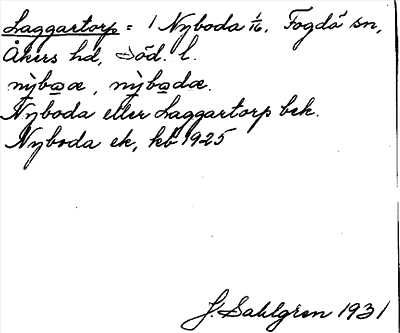 Laggartorp = 1 Nyboda 1/16, Fogdö sn,
Åkers hd, Söd. l.
nỳboæ, nỳbodæ.
Nyboda eller Laggartorp bek.
Nyboda ek, kb 1925
J. Sahlgren 1931